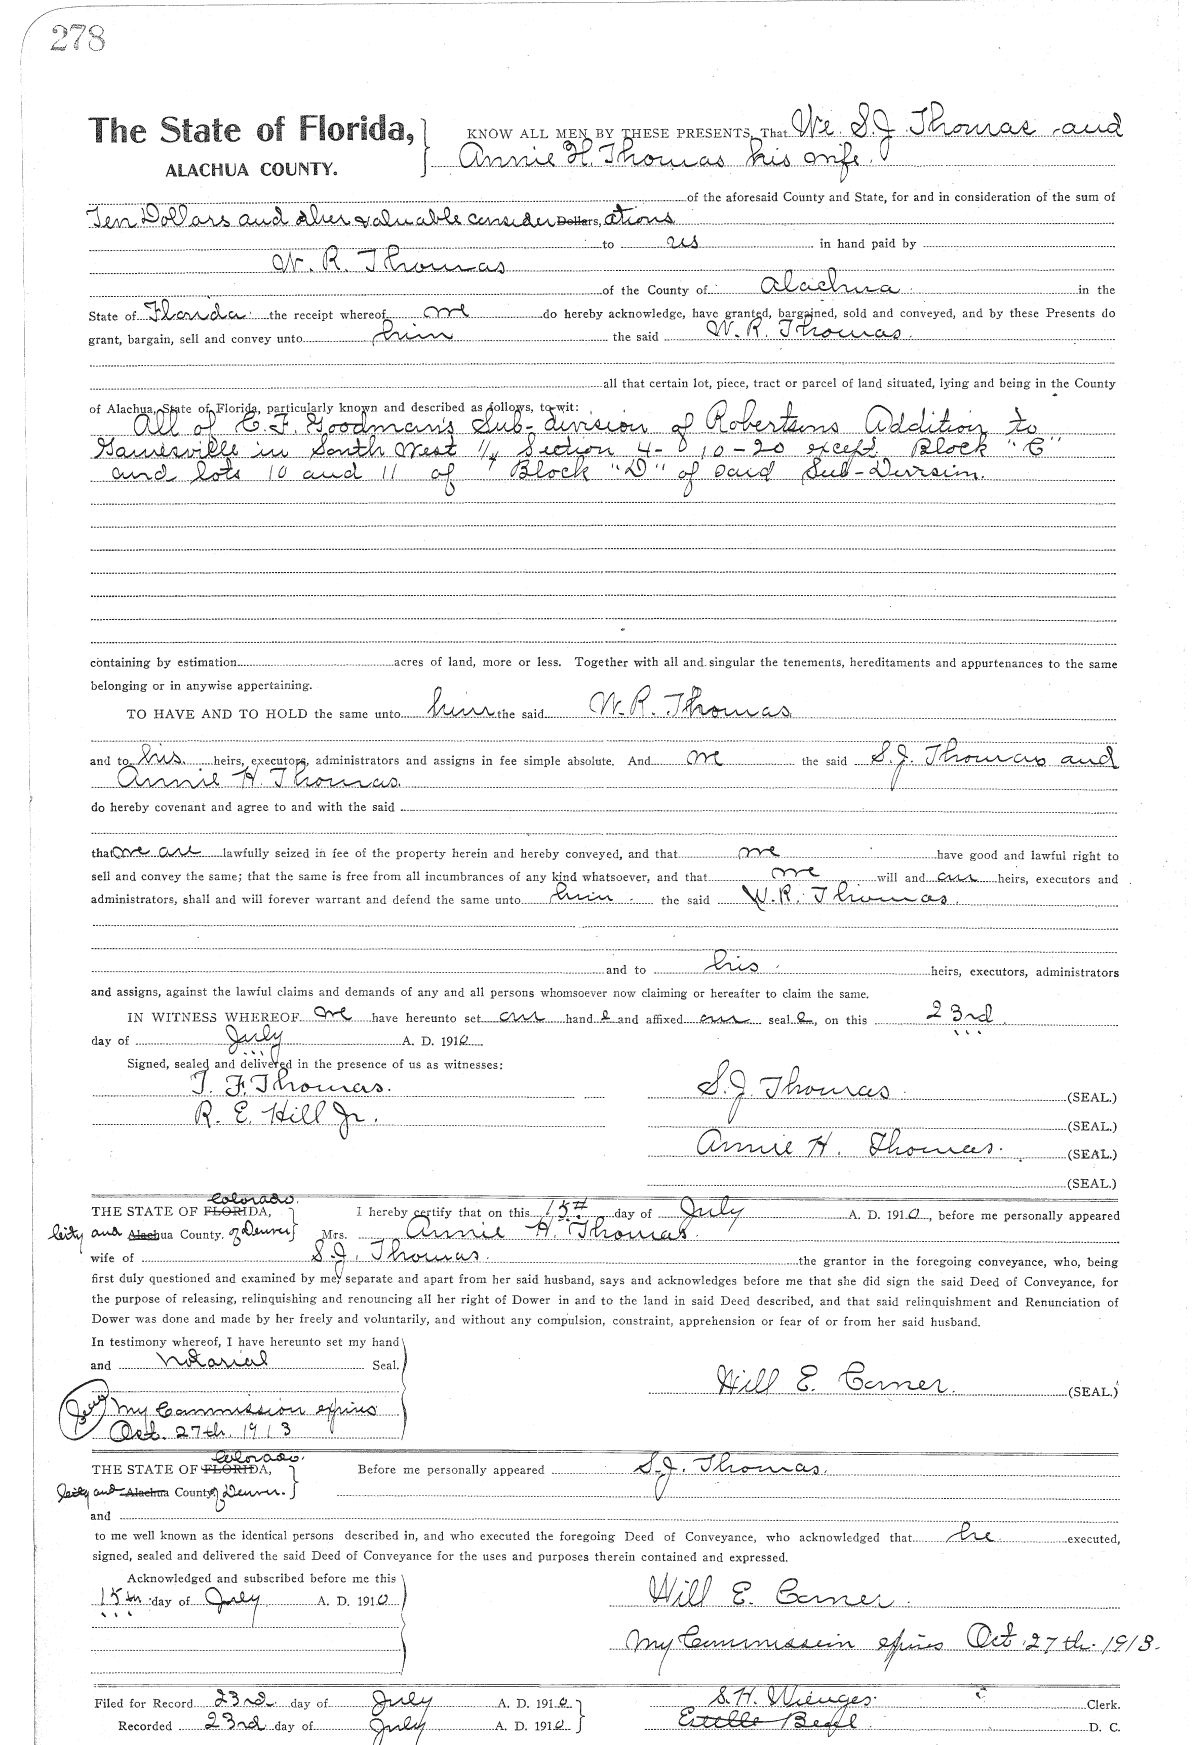 278
The State of Florida, KNOW ALL MEN BY THESE PRESENTS, That We S.J. Thomas and
ALACHUA COUNTY. Annie H. Thomas his wife.
of the aforesaid County and State, for and in consideration of the sum of
Ten Dollars and other valuable consider Dollars, ations
to us in hand paid by
W. R. Thomas
of the County of Alachua in the
State of Florida the receipt whereof we do hereby acknowledge, have granted, bargained, sold and conveyed, and by these Presents do
grant, bargain, sell and convey unto him the said W. R. Thomas.
all that certain lot, piece, tract or parcel of land situated, lying and being in the County
of Alachua, State of Florida, particularly known and described as follows, to-wit:
All of C. F. Goodman's Sub-division of Robertsons Addition to
Gainesville in South West 1/4 Section 4-10-20 except Block "C"
and lots 10 and 11 of Block "D" of said Sub-Division.
containing by estimation acres of land, more or less. Together with all and singular the tenements, hereditaments and appurtenances to the same
belonging or in anywise appertaining.
TO HAVE AND TO HOLD the same unto him the said W. R. Thomas
and to his heirs, executors, administrators and assigns in fee simple absolute. And we the said S.J. Thomas and
Annie H. Thomas.
do hereby covenant and agree to and with the said
that we are lawfully seized in fee of the property herein and hereby conveyed, and that we have good and lawful right to
sell and convey the same; that the same is free from all incumbrances of any kind whatsoever, and that we will and our heirs, executors and
administrators, shall and will forever warrant and defend the same unto him the said W. R. Thomas.
and to his heirs, executors, administrators
and assigns, against the lawful claims and demands of any and all persons whomsoever now claiming or hereafter to claim the same.
IN WITNESS WHEREOF we have hereunto set our hand s and affixed our seal s, on this 23rd
day of July A. D. 1910
Signed, sealed and delivered in the presence of us as witnesses:
T. F. Thomas. S.J. Thomas (SEAL.)
R. E. Hill Jr. (SEAL.)
Annie H. Thomas. (SEAL.)
(SEAL.)
Colorado.
THE STATE OF FLORIDA, I hereby certify that on this 15th day of July A. D. 1910, before me personally appeared
City and Alachua County. of Denver Mrs. Annie H. Thomas.
wife of S.J. Thomas. the grantor in the foregoing conveyance, who, being
first duly questioned and examined by me, separate and apart from her said husband, says and acknowledges before me that she did sign the said Deed of Conveyance, for
the purpose of releasing, relinquishing and renouncing all her right of Dower in and to the land in said Deed described, and that said relinquishment and Renunciation of
Dower was done and made by her freely and voluntarily, and without any compulsion, constraint, apprehension or fear of or from her said husband.
In testimony whereof, I have hereunto set my hand
and Notarial Seal. Will E. Comer. (SEAL.)
My Commission expires
Oct. 27th. 1913
Colorado.
THE STATE OF FLORIDA, Before me personally appeared S.J. Thomas.
City and Alachua County of Denver.
and
to me well known as the identical persons described in, and who executed the foregoing Deed of Conveyance, who acknowledged that he executed,
signed, sealed and delivered the said Deed of Conveyance for the uses and purposes therein contained and expressed.
Acknowledged and subscribed before me this
15th day of July A. D. 1910 Will E. Comer.
My Commission expires Oct 27th. 1913.
Filed for Record 23rd day of July A. D. 1910 S. H. Wienges. Clerk.
Recorded 23rd day of July A. D. 1910 D. C.